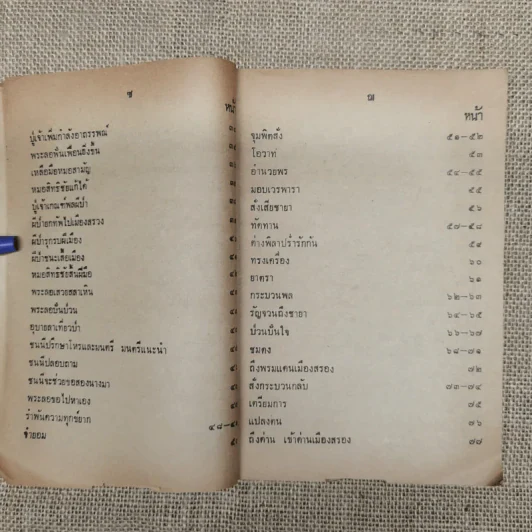 ๗
หน้า
ปู่เจ้าเพิ่มกำลังอาถรรพณ์
พระลอฟั่นเฟือนสิ่งขั้น
เหลือมือหมอสามัญ
หมอสิทธิชัยแก้ได้
ปู่เจ้าเกณฑ์พลผีป่า
ผีป่ายกทัพไปเมืองสรวง
ผีป่ารุกรบผีเมือง
ผีป่าชนะเสื้อเมือง
หมอสิทธิชัยสิ้นฝีมือ
พระลอเสวยสลาเหิน
พระลอปั่นป่วน
อุบายลาเที่ยวป่า
ชนนีปรึกษาโหรและมนตรี มนตรีแนะนำ
ชนนีปลอบถาม
ชนนีจะช่วยขอสองนางมา
พระลอขอไปหาเอง
รำพันความทุกข์ยาก ๔๘—
จำยอม
หน้า
จุมพิตสั่ง ๕๑—๕๒
โอวาท ๕๓
อำนวยพร ๕๔—๕๕
มอบเวรพารา ๕๕
สั่งเสียชายา ๕๖
ทัดทาน ๕๗—๕๘
ต่างพิลาปร่ำรักกัน ๕๙
ทรงเครื่อง ๖๐
ยาตรา ๖๑
กระบวนพล ๖๒—๖๓
รัญจวนถึงชายา ๖๔—๖๕
ป่วนปั่นใจ ๖๖—๖๗
ชมดง ๖๘—๗๑
ถึงพรมแดนเมืองสรอง ๗๒
สั่งกระบวนกลับ ๗๓—๗๔
เตรียมการ ๗๕
แปลงตน ๗๖
ถึงด่าน เข้าด่านเมืองสรอง ๗๗